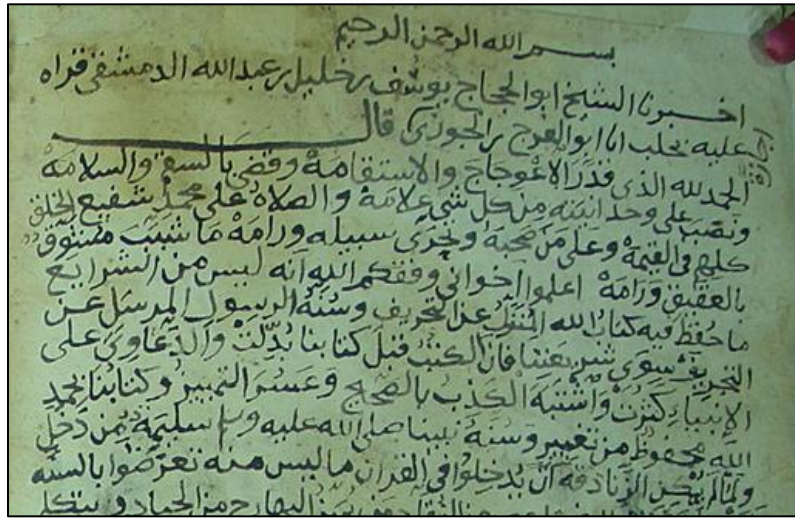 بسم الله الرحمن الرحيم
اخبرنا الشيخ ابو الحجاج يوسف بن خليل بن عبد الله الدمشقي قراه
عليه بحلب انا ابو الفرج بن الجوزي قال
الحمد لله الذي قدر الاعوجاج والاستقامة وقضى بالسقم والسلامة
ونصب على وحدانيته من كل شي علامة والصلاة على محمد شفيع الخلق
كلهم في القيمة وعلى من صحبه وتحرى سبيله ورامه ما شبب مشوق
بالعقيق ورامة اعلموا اخواني وفقكم الله انه ليس من الشرايع
ما حفظ فيه كتاب الله المنزل عن التحريف وسنة الرسول المرسل عن
التجريف سوى شريعتنا فان الكتب قبل كتابنا بدلت والدعاوي على
الانبياء كثرت واشتبه الكذب بالصحيح وعسر التمييز وكتابنا بحمد
الله محفوظ من تغيير وسنة نبينا صلى الله عليه وسلم سليمة من دخل
ولما لم يمكن الزنادقة ان يدخلوا في القران ما ليس منه تعرضوا بالسنة